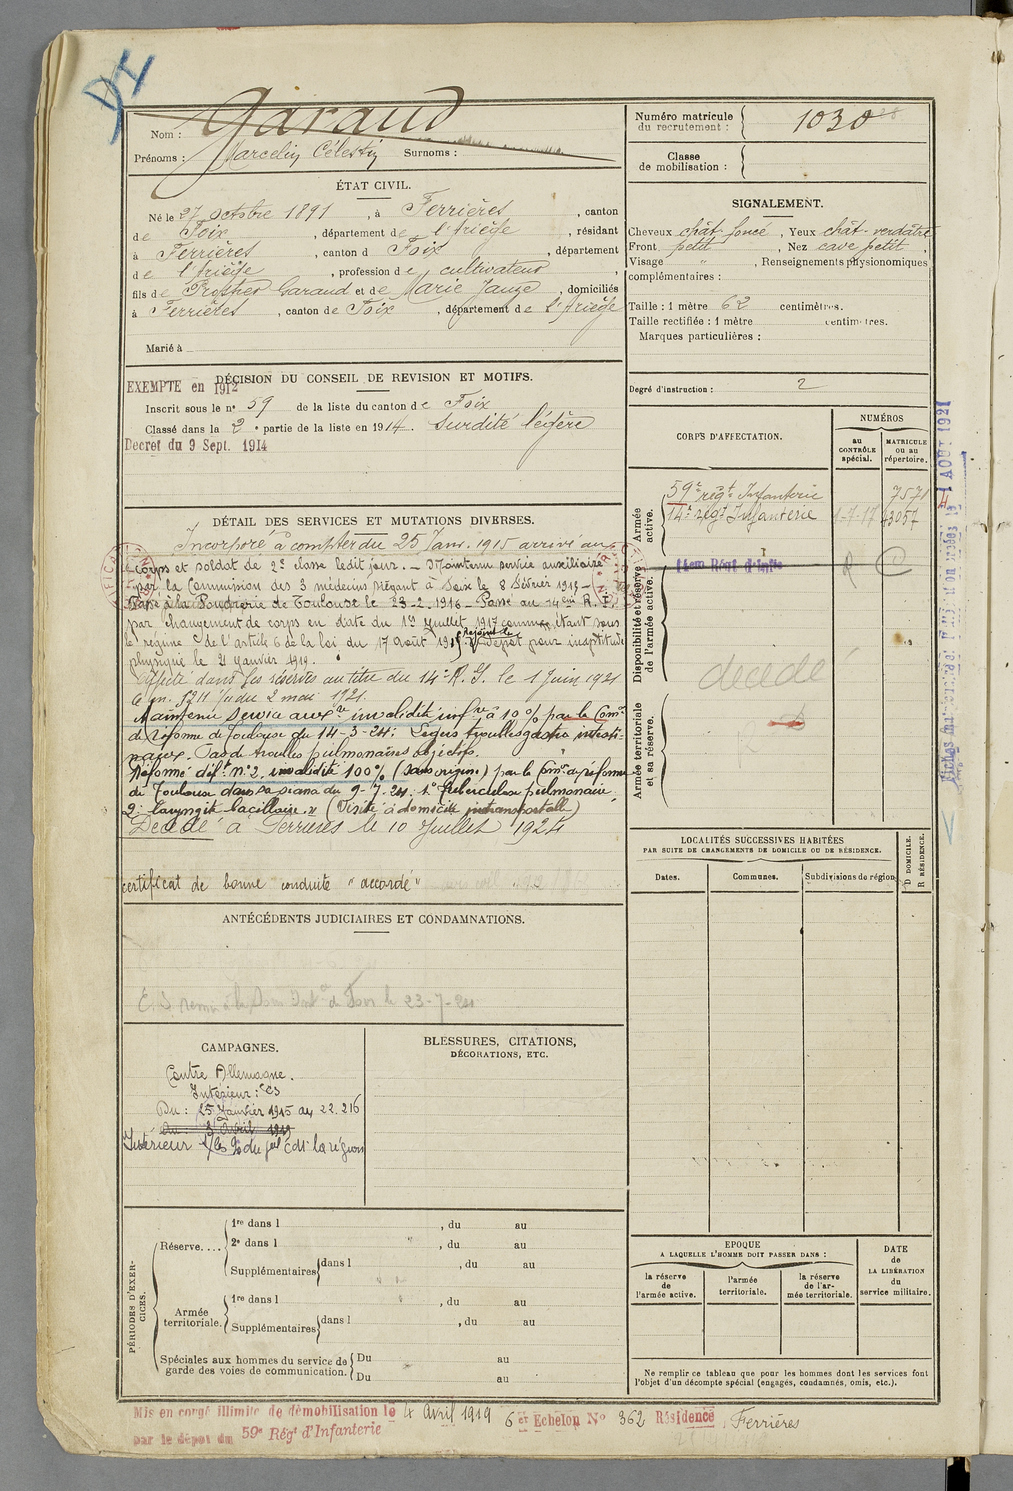 Nom : Garaud
Prénoms : Marcelin Célestin Surnoms :
Numéro matricule
du recrutement : 1030
Classe
de mobilisation :
ÉTAT CIVIL.
Né le 27 octobre 1891, à Ferrières, canton
de Foix, département de l'Ariège, résidant
à Ferrières, canton d Foix, département
de l'Ariège, profession de cultivateur,
fils de Prosper Garaud et de Marie Jauze, domiciliés
à Ferrières, canton de Foix, département de l'Ariège
Marié à
SIGNALEMENT.
Cheveux chât-foncé, Yeux chât-verdâtre
Front petit, Nez cave petit,
Visage ", Renseignements physionomiques
complémentaires :
Taille : 1 mètre 62 centimètres.
Taille rectifiée : 1 mètre centimètres.
Marques particulières :
Degré d'instruction : 2
DÉCISION DU CONSEIL DE REVISION ET MOTIFS.
EXEMPTE en 1912
Inscrit sous le n° 59 de la liste du canton de Foix
Classé dans la 2e partie de la liste en 1914. Surdité légère
Decret du 9 Sept. 1914
DÉTAIL DES SERVICES ET MUTATIONS DIVERSES.
Incorporé à compter du 25 Janv. 1915 arrivé au
corps et soldat de 2e classe ledit jour. – Maintenu service auxiliaire
par la Commission des 3 médecins siégant à Foix le 8 Février 1915 –
Passé à la Poudrerie de Toulouse le 23-2-1916 – Passé au 14eme R. I.
par changement de corps en date du 1er Juillet 1917 comme étant sous
le régime de l'article 6 de la loi du 17 août 1915. Rejoint le dépôt pour inaptitude
physique le 21 Janvier 1919.
Affecté dans les réserves au titre du 14e R. I. le 1 Juin 1921
Maintenu Service auxre invalidité infre à 10 % par la Comon
de réforme de Toulouse du 14-3-24: Légers troubles gastro intesti-
naux. Pas de troubles pulmonaires objectifs.
Réformé déft n° 2, invalidité 100% (sans origine) par la Comon de réforme
de Toulouse dans sa séance du 9-7-24: 1° Tuberculose pulmonaire
2° Laryngite bacillaire. " (Visité à domicile intransportable)
Décédé à Ferrières le 10 Juillet 1924
certificat de bonne conduite "accordé"
CORPS D'AFFECTATION.
NUMÉROS
au
CONTRÔLE
spécial.
MATRICULE
ou au
répertoire.
Armée
active.
59e régt Infanterie 7571
14e régt Infanterie 1-7-17 43057
Disponibilité et réserve
de l'armée active.
14em Régt d'Infie R C
décédé
Armée territoriale
et sa réserve.
LOCALITÉS SUCCESSIVES HABITÉES
PAR SUITE DE CHANGEMENTS DE DOMICILE OU DE RÉSIDENCE.
D DOMICILE.
R RÉSIDENCE.
Dates. Communes. Subdivisions de région.
ANTÉCÉDENTS JUDICIAIRES ET CONDAMNATIONS.
23-7-24
CAMPAGNES.
Contre Allemagne.
Intérieur : CS
Du : 25 Janvier 1915 au 22.2.16
Du : 3 Avril 1919
BLESSURES, CITATIONS,
DÉCORATIONS, ETC.
PÉRIODES D'EXER-
CICES.
Réserve....
1re dans l , du au
2e dans l , du au
Supplémentaires dans l , du au
Armée
territoriale.
1re dans l , du au
Supplémentaires dans l , du au
Spéciales aux hommes du service de
garde des voies de communication.
Du au
Du au
EPOQUE
A LAQUELLE L'HOMME DOIT PASSER DANS :
la réserve
de
l'armée active.
l'armée
territoriale.
la réserve
de l'ar-
mée territoriale.
DATE
de
LA LIBÉRATION
du
service militaire.
Ne remplir ce tableau que pour les hommes dont les services font
l'objet d'un décompte spécial (engagés, condamnés, omis, etc.).
Mis en congé illimité de démobilisation le 4 Avril 1919 6e Echelon N° 362 Résidence Ferrières
par le dépôt du 59e Régt d'Infanterie